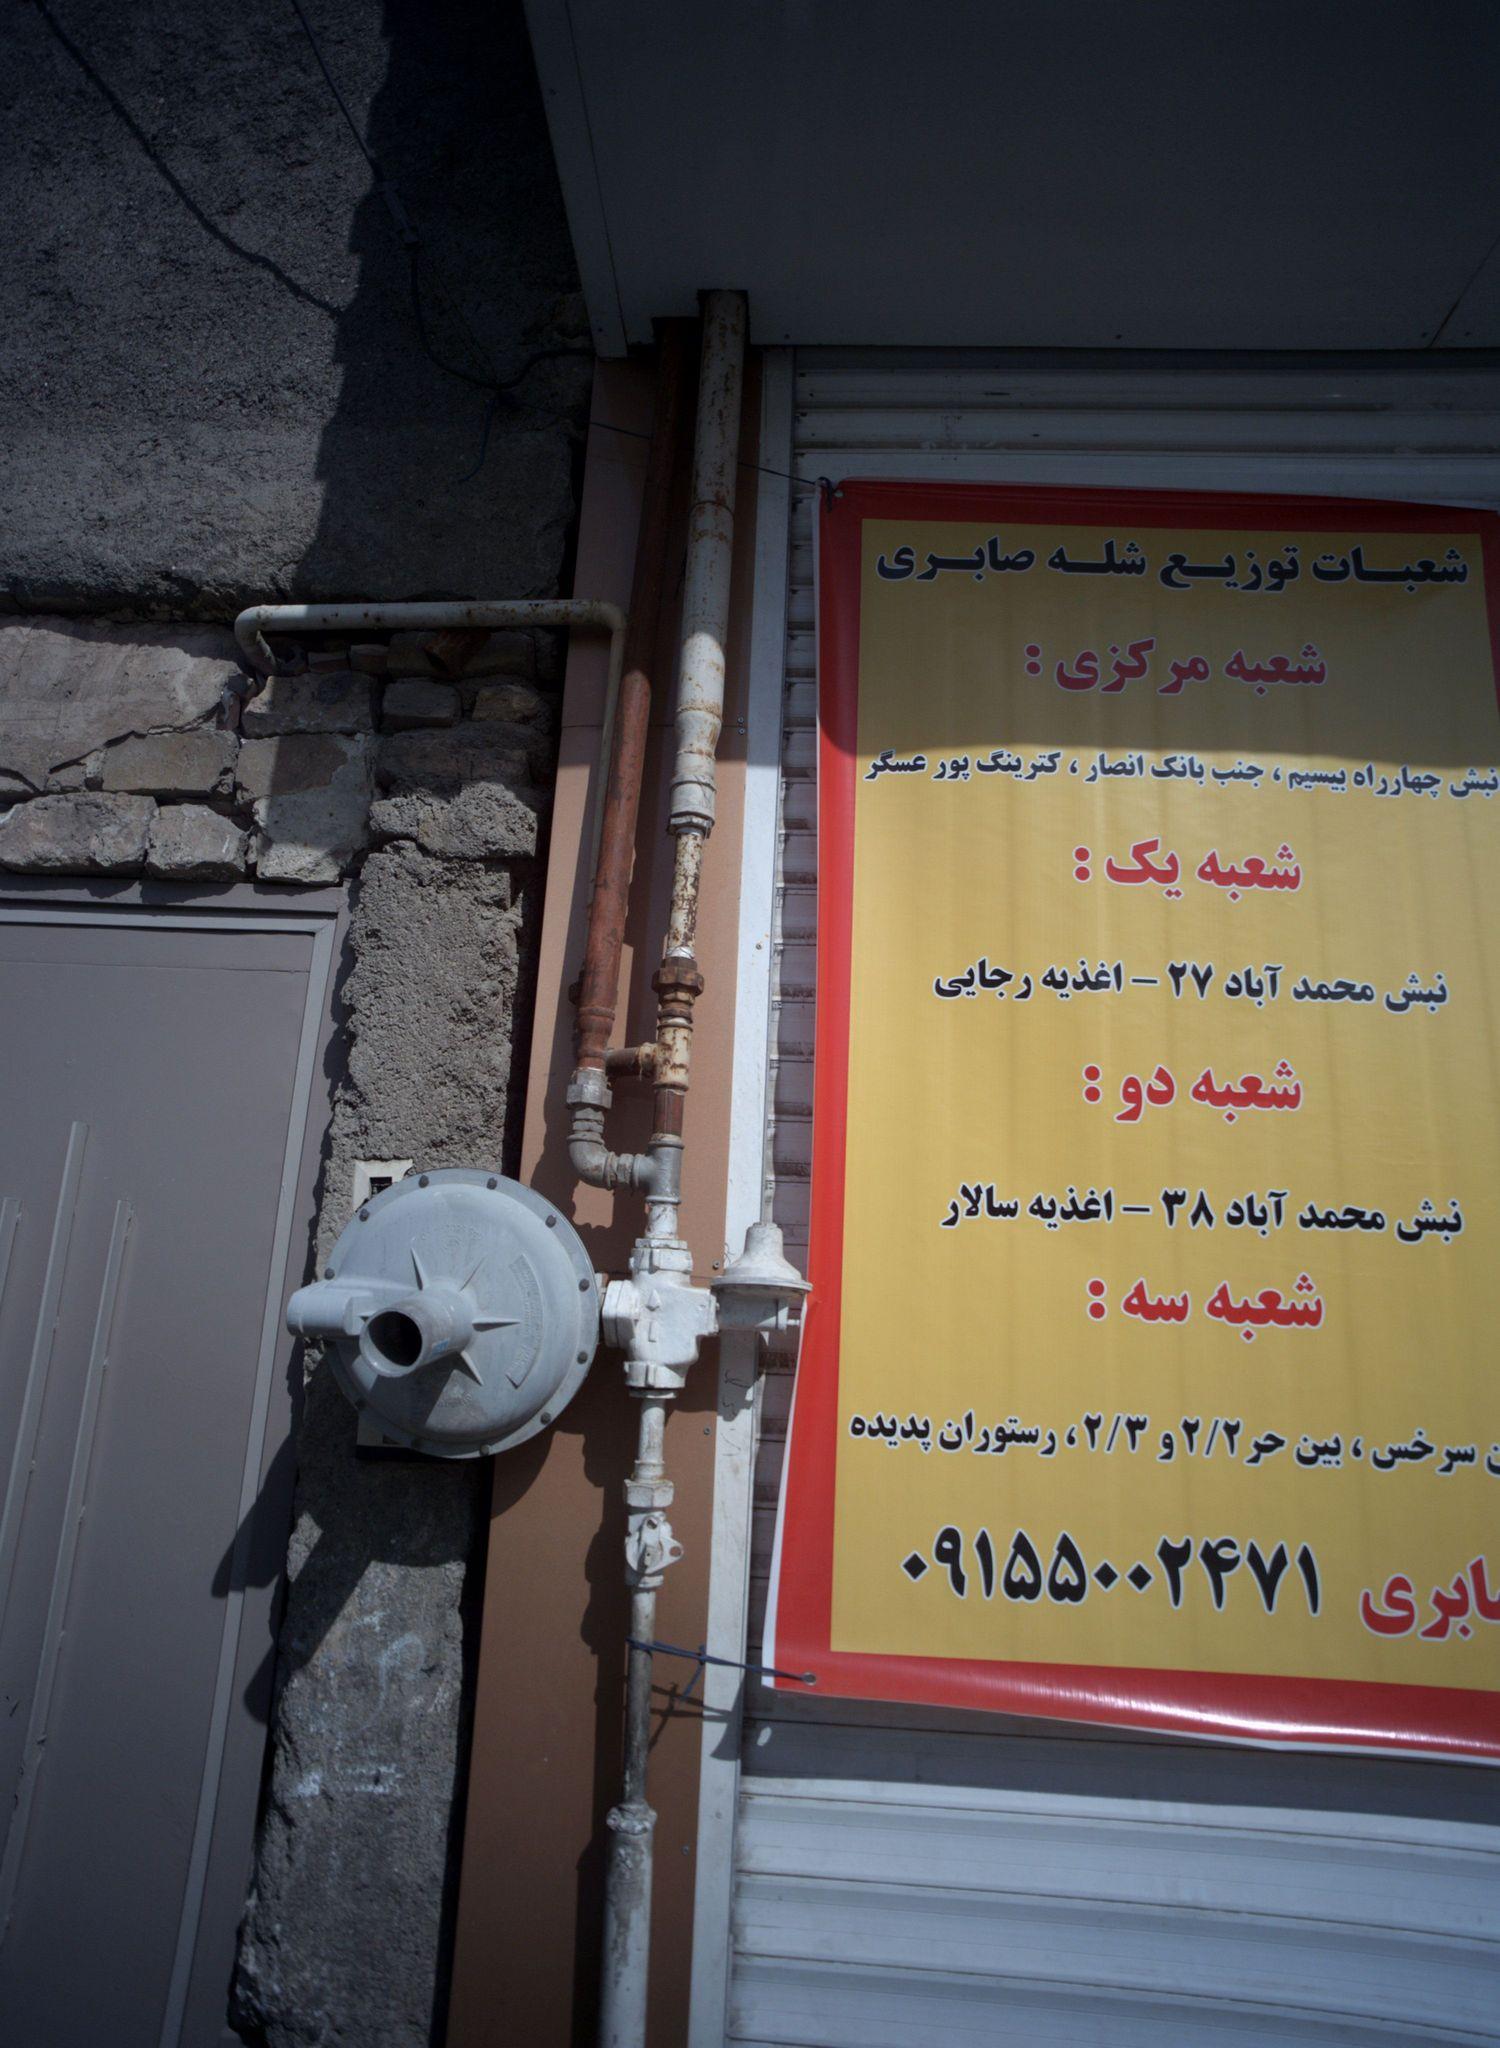 شعبات توزیع شله صابری
شعبه مرکزی :
نبش چهارراه بیسیم ، جنب بانک انصار ، کترینگ پور عسگر
شعبه یک :
نبش محمد آباد ۲۷ – اغذیه رجایی
شعبه دو :
نبش محمد آباد ۳۸ – اغذیه سالار
شعبه سه :
سرخس ، بین حر ۲/۲ و ۲/۳ ، رستوران پدیده
۰۹۱۵۵۰۰۲۴۷۱